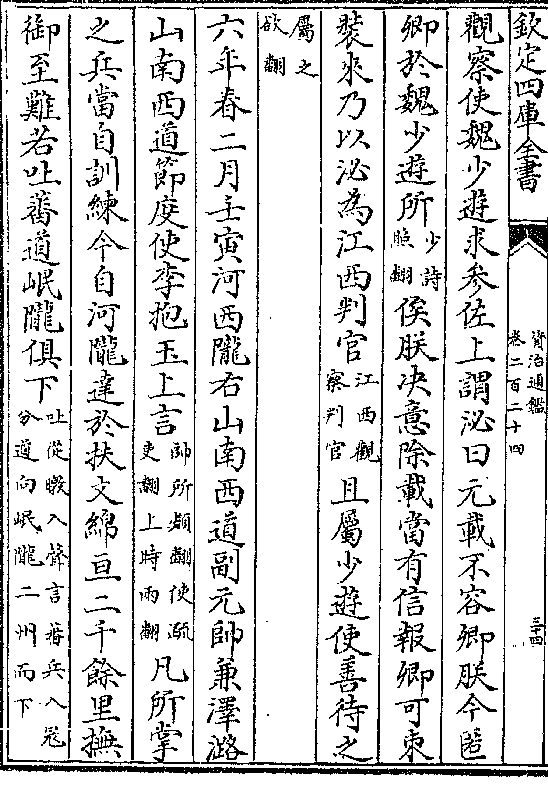 欽定四庫全書
資治通鑑
卷二百二十四
三十四
觀察使魏少遊求參佐上謂泌曰元載不容卿朕今匿
卿於魏少遊所少詩照翻俟朕决意除載當有信報卿可束
裝來乃以泌為江西判官江西觀察判官且屬少遊使善待之
屬之欲翻
六年春二月壬寅河西隴右山南西道副元帥兼澤潞
山南西道節度使李抱玉上言帥所類翻使疏吏翻上時兩翻凡所掌
之兵當自訓練今自河隴達於扶文綿亘二千餘里撫
御至難若吐蕃道岷隴俱下吐從暾入聲言蕃兵入冦分道向岷隴二州而下